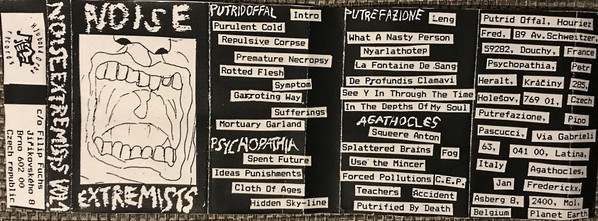 c/o Filip Fuchs
8
Brno 602 00
Czech republic
NOISE EXTREMISTS
NOISE
EXTREMISTS
PUTRID OFFAL Intro
Purulent Cold
Repulsive Corpse
Premature Necropsy
Rotted Flesh
Symptom
Garroting Way
Sufferings
Mortuary Garland
PSYCHOPATHIA
Spent Future
Ideas Punishments
Cloth Of Ages
Hidden Sky-line
PUTREFAZIONE Leng
What A Nasty Person
Nyarlathotep
La Fontaine De Sang
De Profundis Clamavi
See Y In Through The Time
In The Depths Of My Soul
AGATHOCLES
Squeere Anton
Splattered Brains Fog
Use the Mincer
Forced Pollutions C.E.P.
Teachers Accident
Putrified By Death
Putrid Offal, Houriez
Fred. 89 Av.Schweitzer.
59282. Douchy. France
Psychopathia. Petr
Heralt. Kráčiny 285.
Holešov. 769 01. Czech
Putrefazione. Pino
Pascucci. Via Gabrieli
63. 041 00. Latina.
Italy Agathocles.
Jan Frederickx.
Asberg 8. 2400. Mol.
Belgium Planet Earth